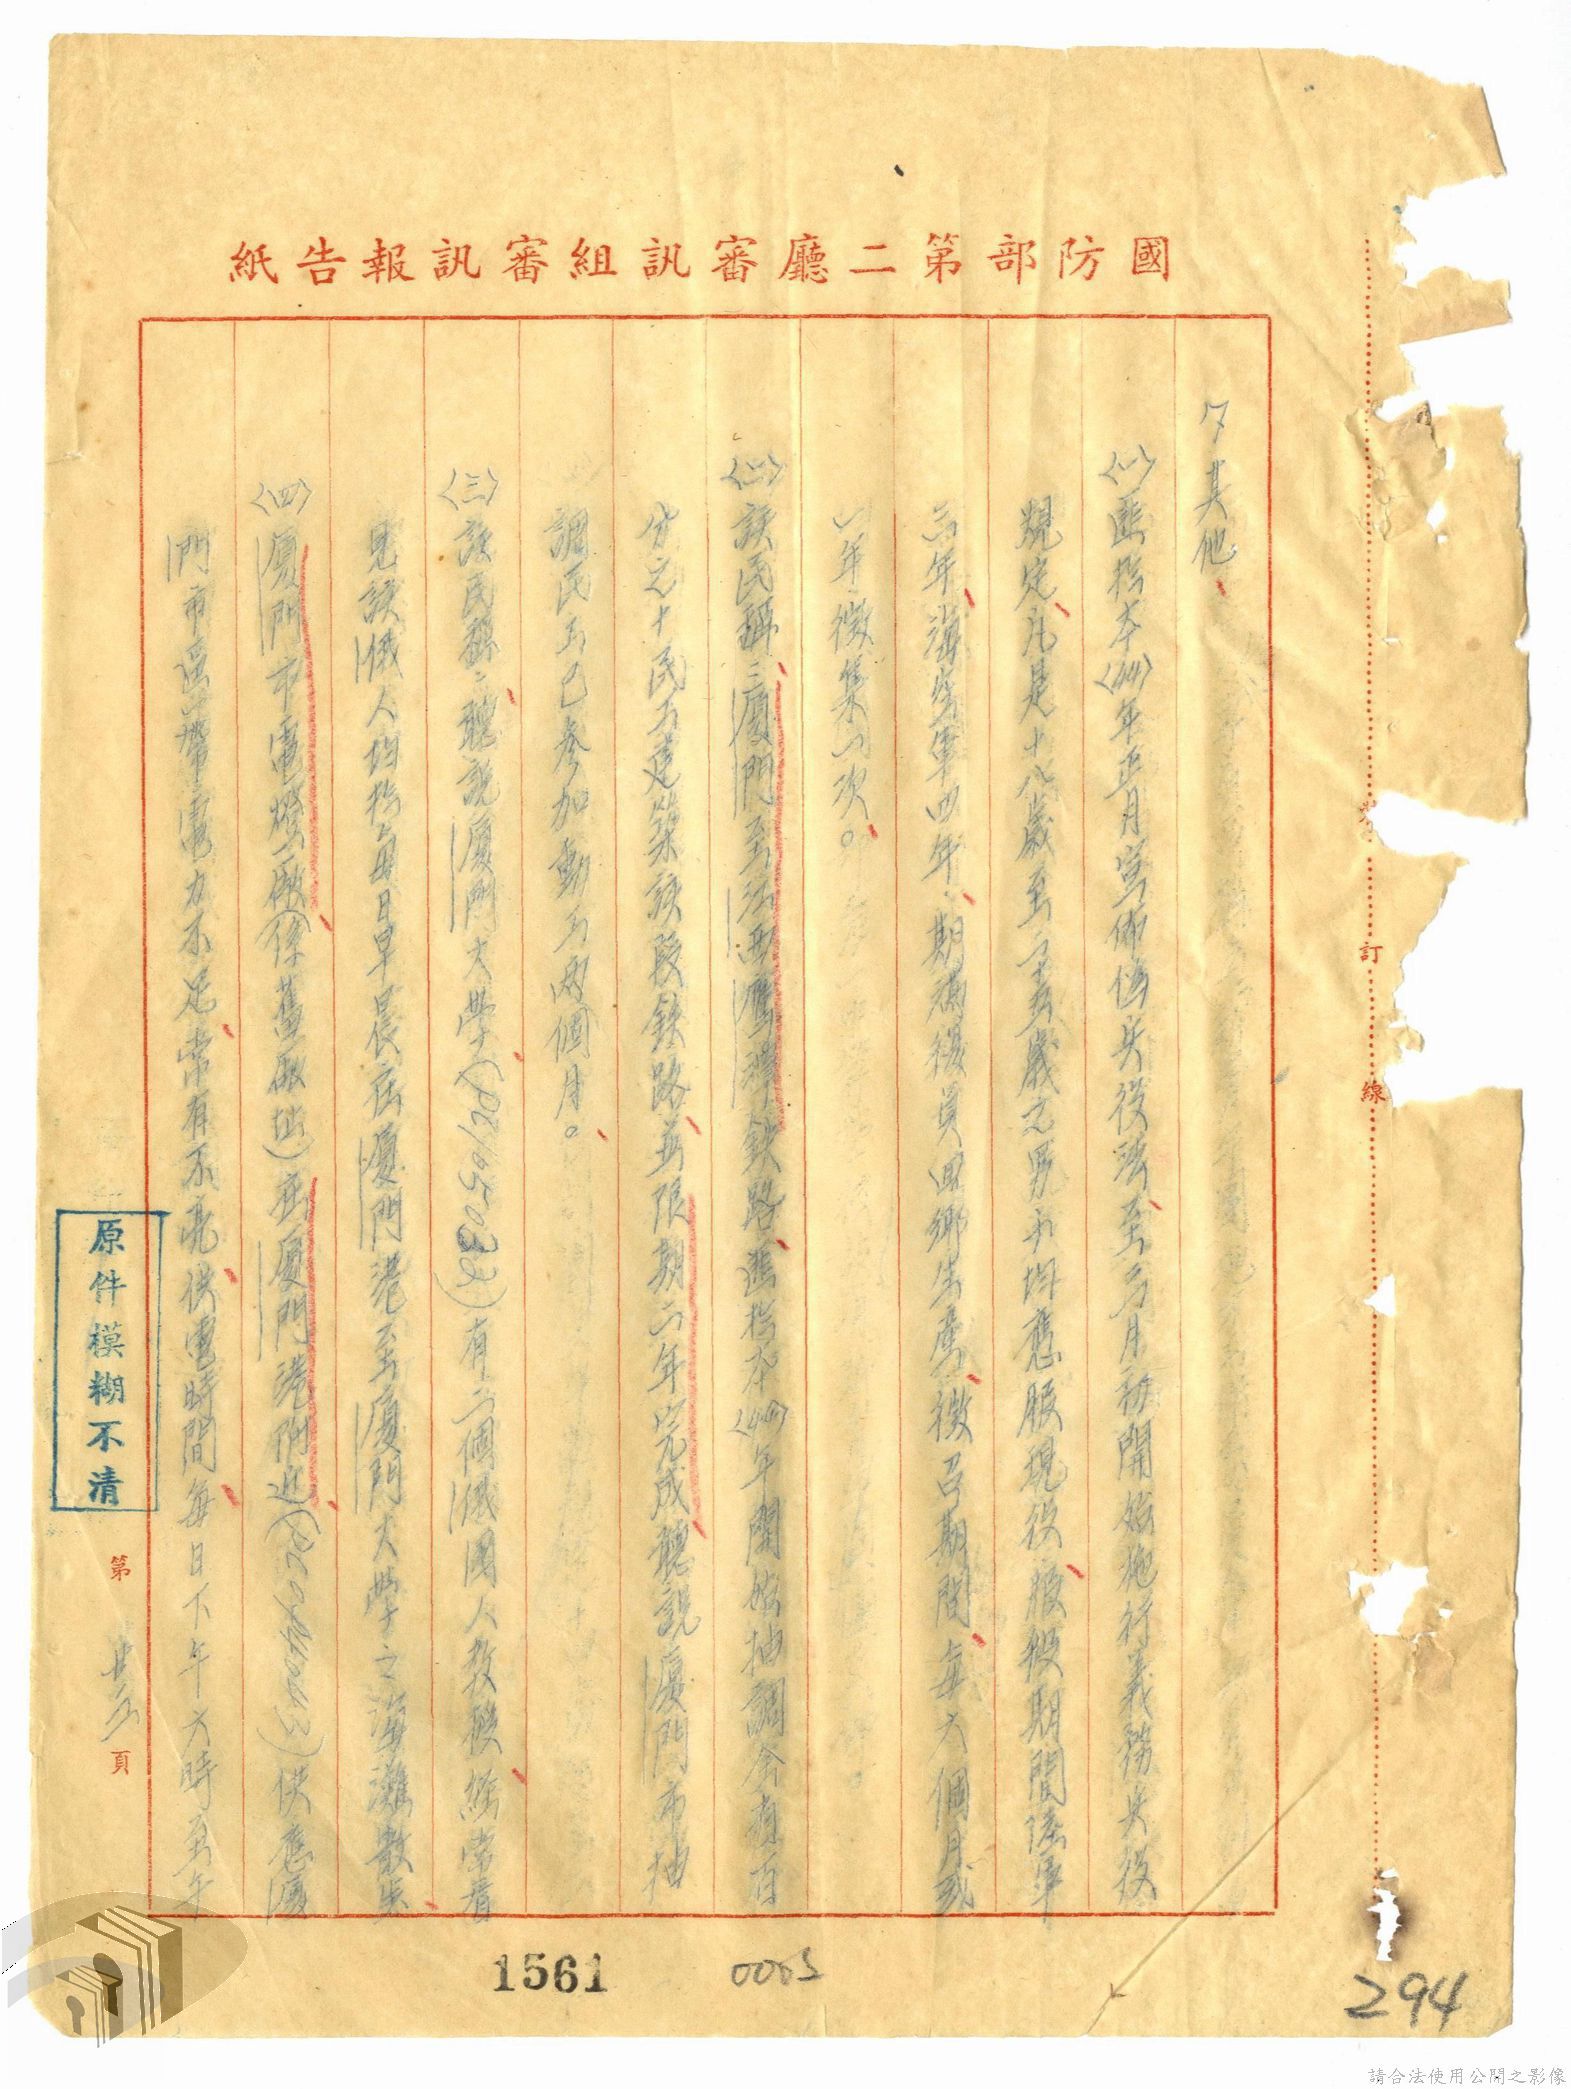 國防部第二廳審訊組審訊報告紙
7其他、
㈠匪於本〈44〉年正月宣佈偽兵役法至名月初開始施行義務兵役
規定、凡是十八歲至二十五歲之男女均應服現役、服役期間陸軍
三年、海空軍四年、期滿復員回鄉生產、徵召期間、每六個月或
一年徵集一次。
㈡該民稱：廈門至江西鷹潭鉄路、匪於本〈44〉年開始抽調全省百
分之十民工建築該段鉄路、並限期二年完成、聽說廈門市抽
調民工已參加動工兩個月。
㈢該民稱：聽說廈門大學、(PC/055032)有二個俄國人教授、經常看
見該俄人均於每日早晨在廈門港至廈門大學之海灘散步、
㈣廈門市電燈廠、(係舊廠址)在廈門港附近、(PC044043)供應廈
門市區帶電力不足、常有不亮、供電時間、每日下午六時至午
裝訂線
第廿五頁
原件模糊不清
1561
0005
294
請合法使用公開之影像